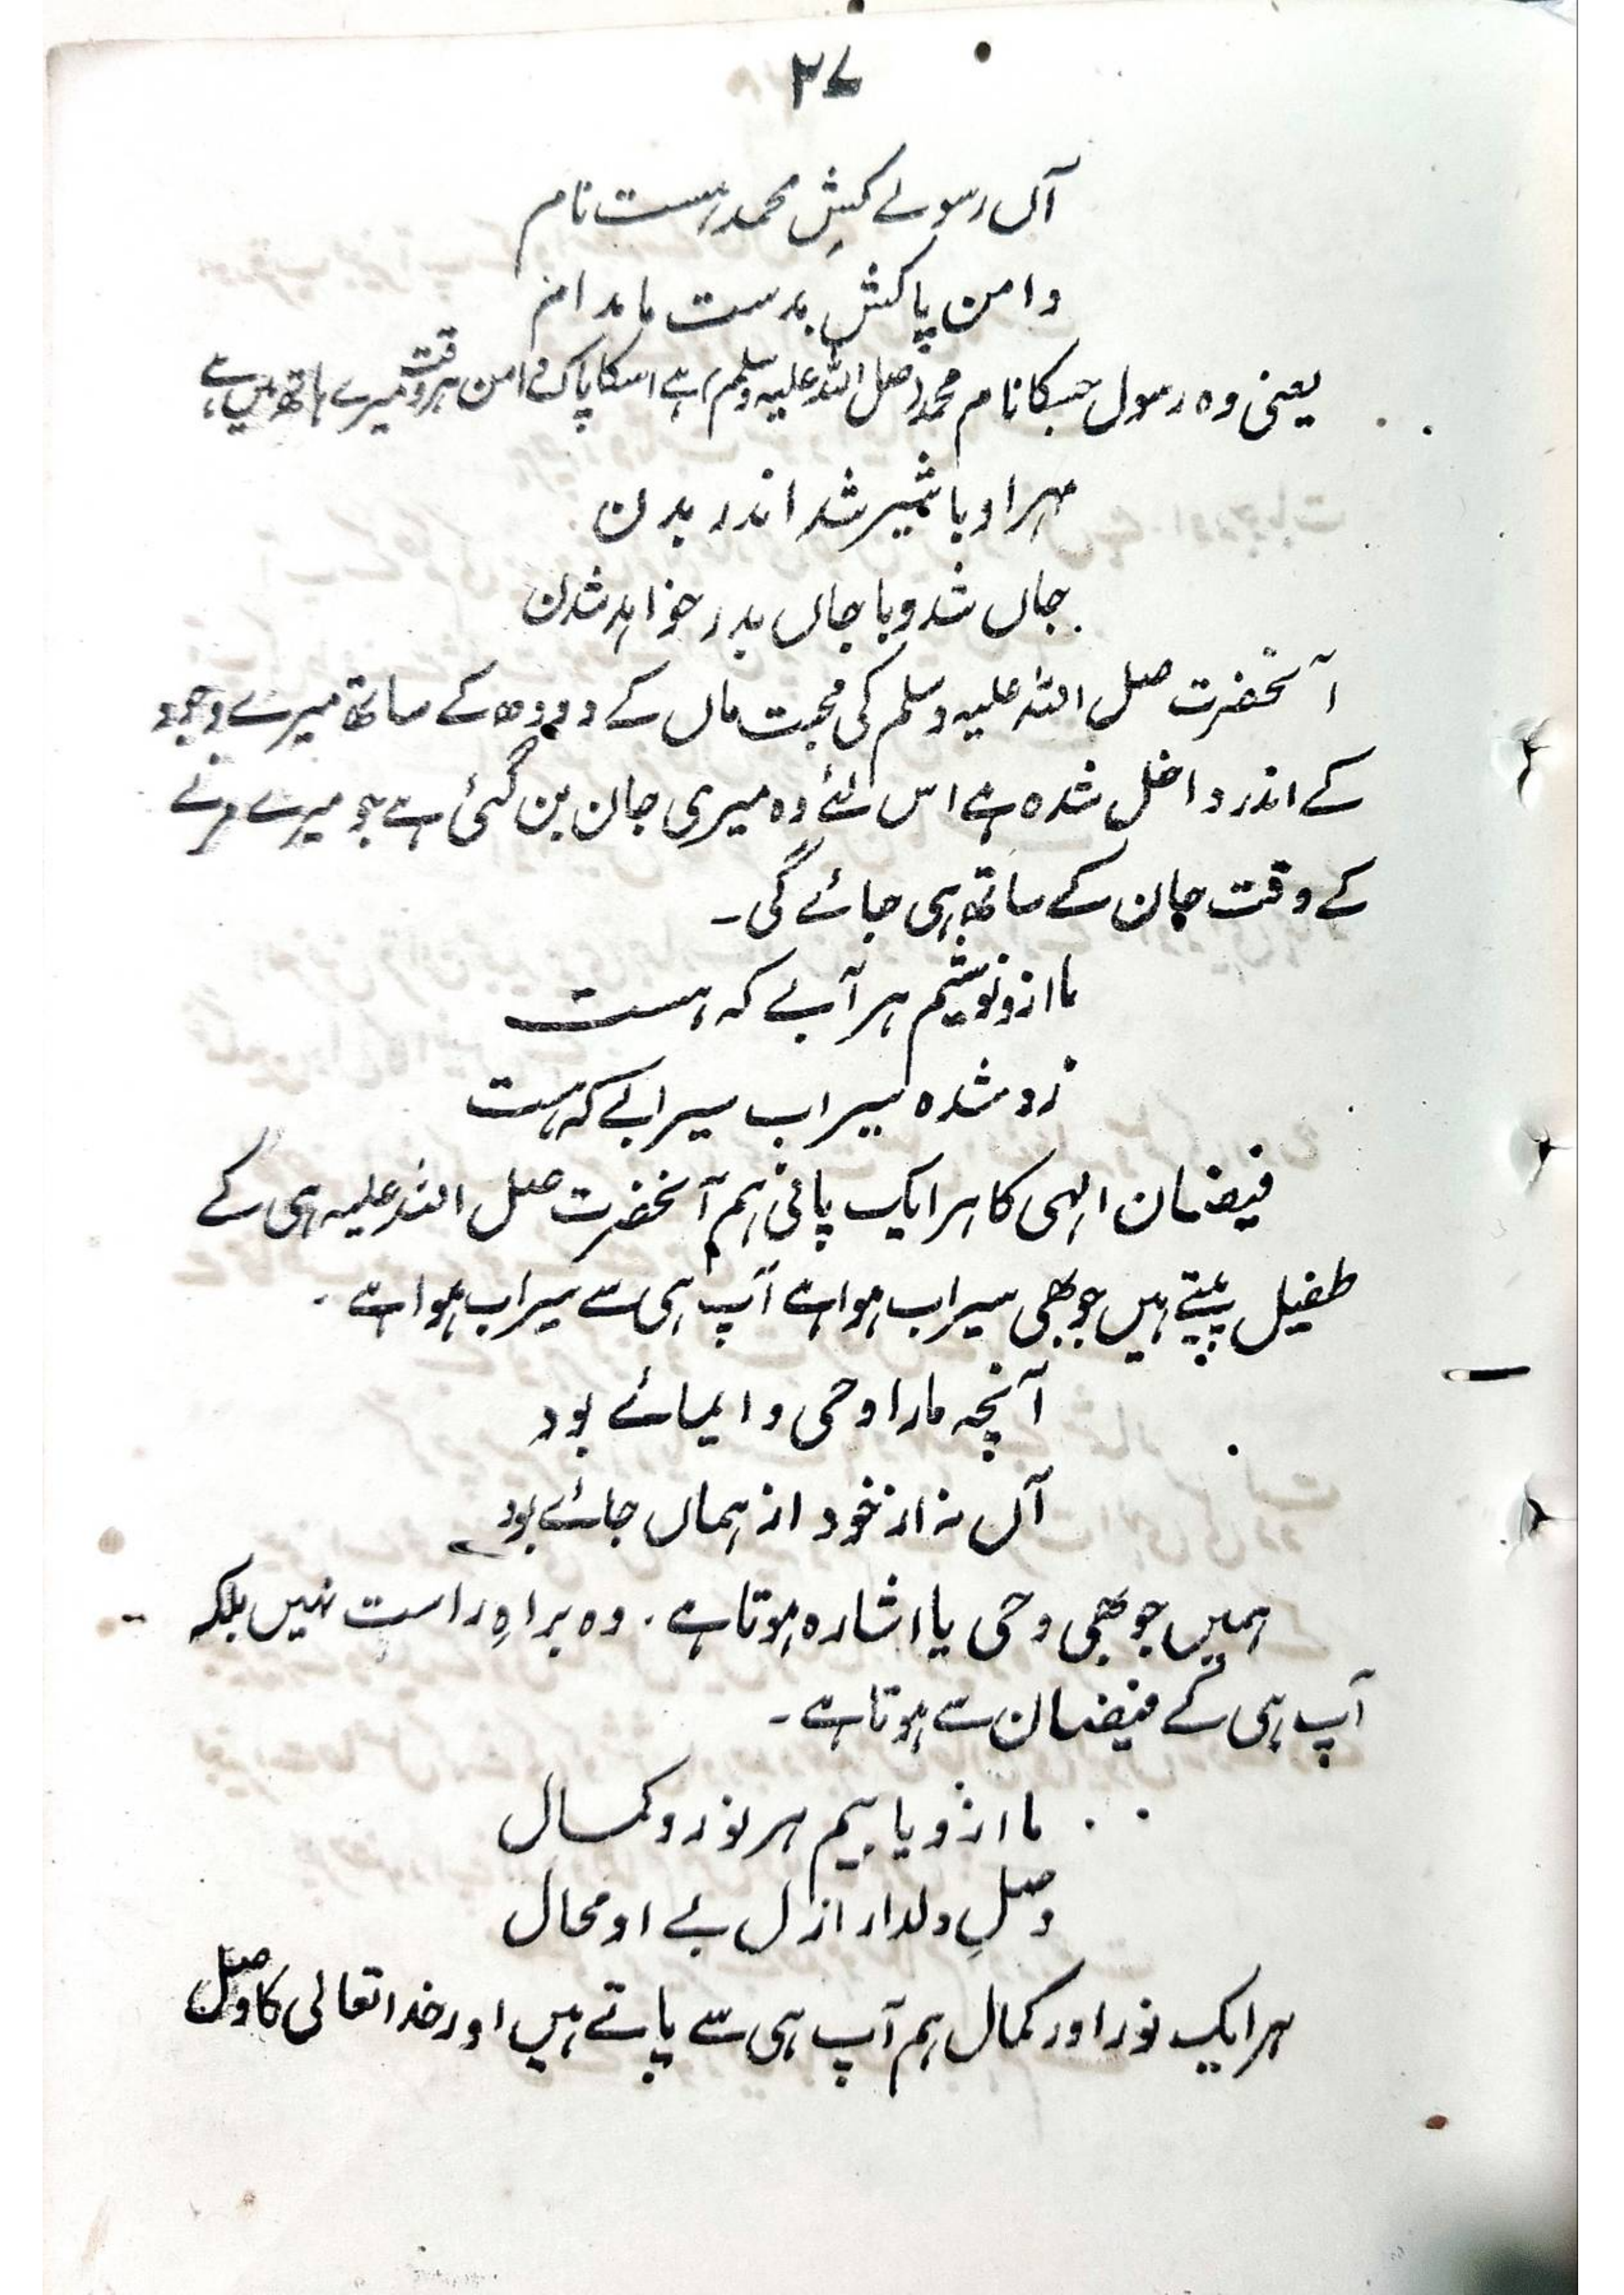 ۲۷
آں رسولے کشِ محمد ہست نام
دامن پاکش بدست ما مدام
یعنی وہ رسول جسکا نام محمد (صلی اللہ علیہ وسلم) ہے اسکا پاک دامن ہر وقت میرے ہاتھ میں ہے
مہر او با شیر شد اندر بدن
جاں شد و با جاں بدر خواہد شدن
آنحضرت صلی اللہ علیہ وسلم کی محبت ماں کے دودھ کے ساتھ میرے وجود
کے اندر داخل شدہ ہے اس لئے وہ میری جان بن گئی ہے جو میرے مرنے
کے وقت جان کے ساتھ ہی جائے گی۔
ما ازو نوشیم ہر آبے کہ ہست
زو شدہ سیراب سیرابے کہ ہست
فیضان الہی کا ہر ایک پانی ہم آنحضرت صلی اللہ علیہ ہی کے
طفیل پیتے ہیں جو بھی سیراب ہوا ہے آپ ہی سے سیراب ہوا ہے ۔
آنچہ مارا وحی و ایمائے بود
آں نہ از خود از ہماں جائے بود
ہمیں جو بھی وحی یا اشارہ ہوتا ہے ۔ وہ براہِ راست نہیں بلکہ
آپ ہی کے فیضان سے ہوتا ہے ۔
ما ازو یابیم ہر نور و کمال
وصلِ دلدار ازل بے او محال
ہر ایک نور اور کمال ہم آپ ہی سے پاتے ہیں اور خدا تعالی کا وصل